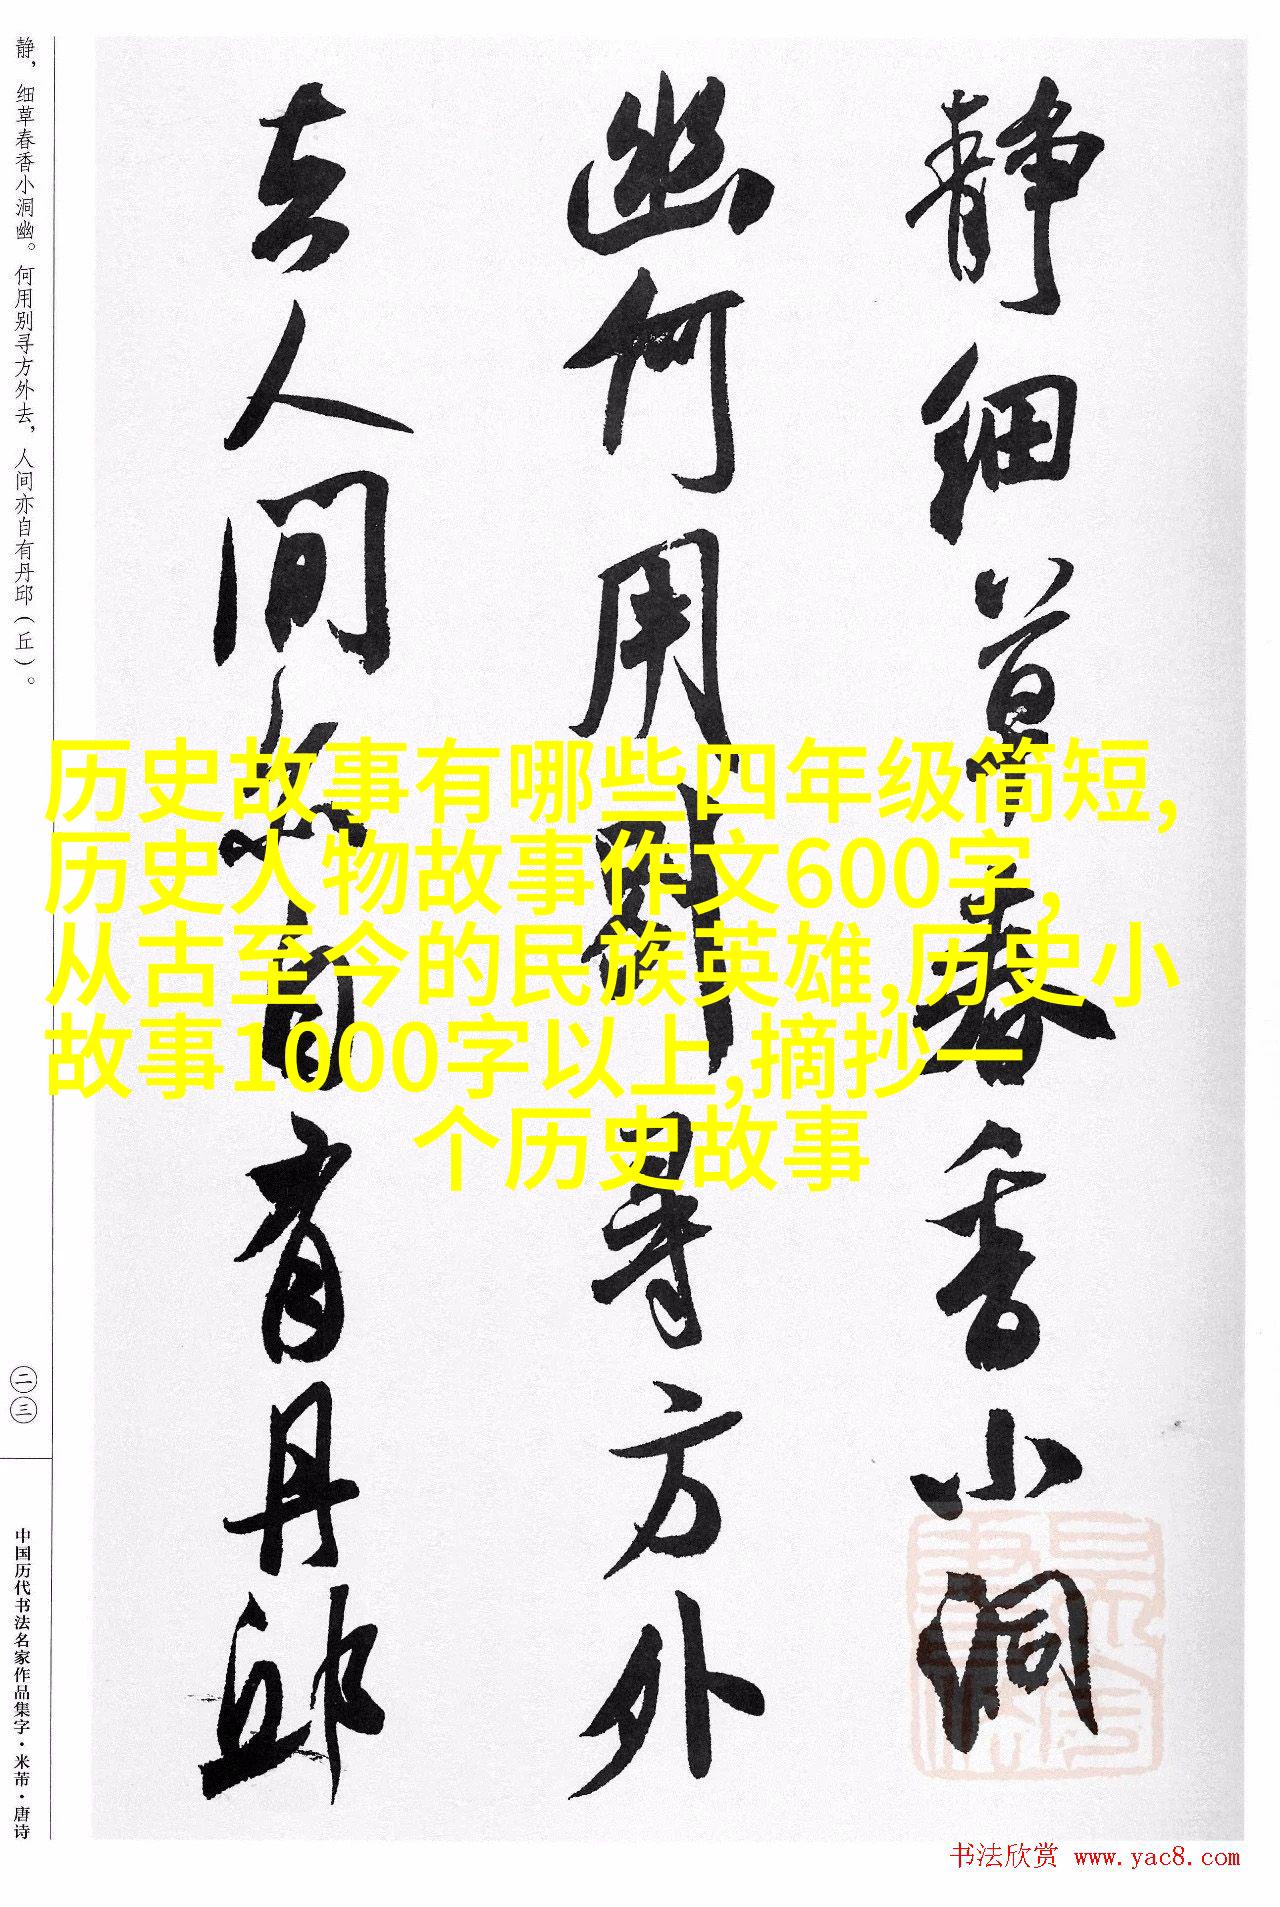 静细草春香小洞
幽何用别寻方外
去人间亦自有丹邱
静，细草春香小洞幽。何用别寻方外去，人间亦自有丹邱（丘）。
二三
中国历代书法名家作品集字·米芾·唐诗
历史故事有哪些四年级简短,
历史人物故事作文600字,
从古至今的民族英雄,历史小
故事1000字以上,摘抄一
个历史故事
书法欣赏 www.yac8.com